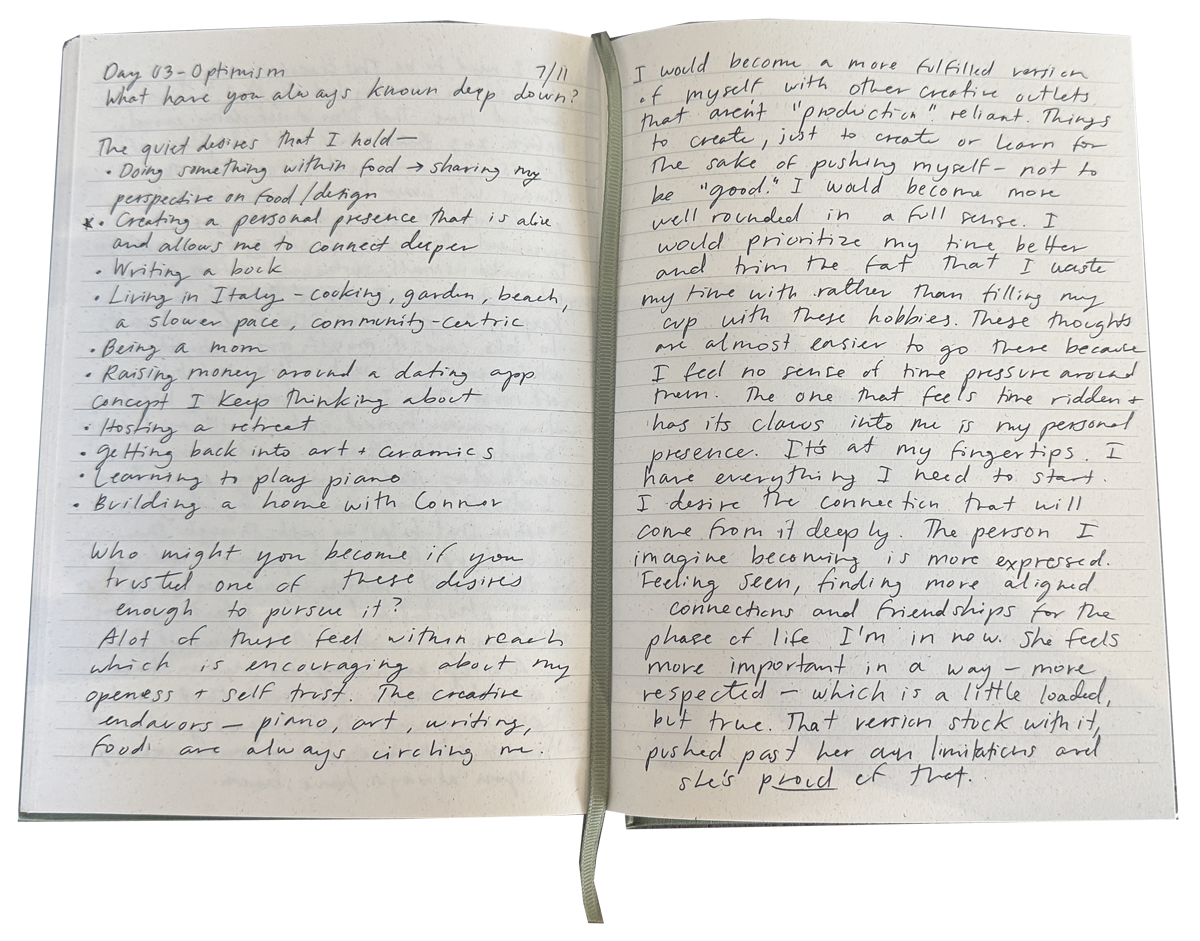 Day 03 - Optimism 7/11
What have you always known deep down?
The quiet desires that I hold—
• Doing something within food → sharing my
perspective on food/design
* • Creating a personal presence that is alive
and allows me to connect deeper
• Writing a book
• Living in Italy - cooking, garden, beach,
a slower pace, community-centric
• Being a mom
• Raising money around a dating app
concept I keep thinking about
• Hosting a retreat
• getting back into art + ceramics
• Learning to play piano
• Building a home with Connor
Who might you become if you
trusted one of these desires
enough to pursue it?
Alot of these feel within reach
which is encouraging about my
openess + self trust. The creative
endavors — piano, art, writing,
food are always circling me.
I would become a more fulfilled version
of myself with other creative outlets
that aren't "production" reliant. Things
to create, just to create or learn for
the sake of pushing myself - not to
be "good." I would become more
well rounded in a full sense. I
would prioritize my time better
and trim the fat that I waste
my time with rather than filling my
cup with these hobbies. These thoughts
are almost easier to go there because
I feel no sense of time pressure around
them. The one that feels time ridden +
has its claws into me is my personal
presence. It's at my fingertips. I
have everything I need to start.
I desire the connection that will
come from it deeply. The person I
imagine becoming is more expressed.
Feeling seen, finding more aligned
connections and friendships for the
phase of life I'm in now. She feels
more important in a way - more
respected - which is a little loaded,
but true. That version stuck with it,
pushed past her own limitations and
she's proud of that.